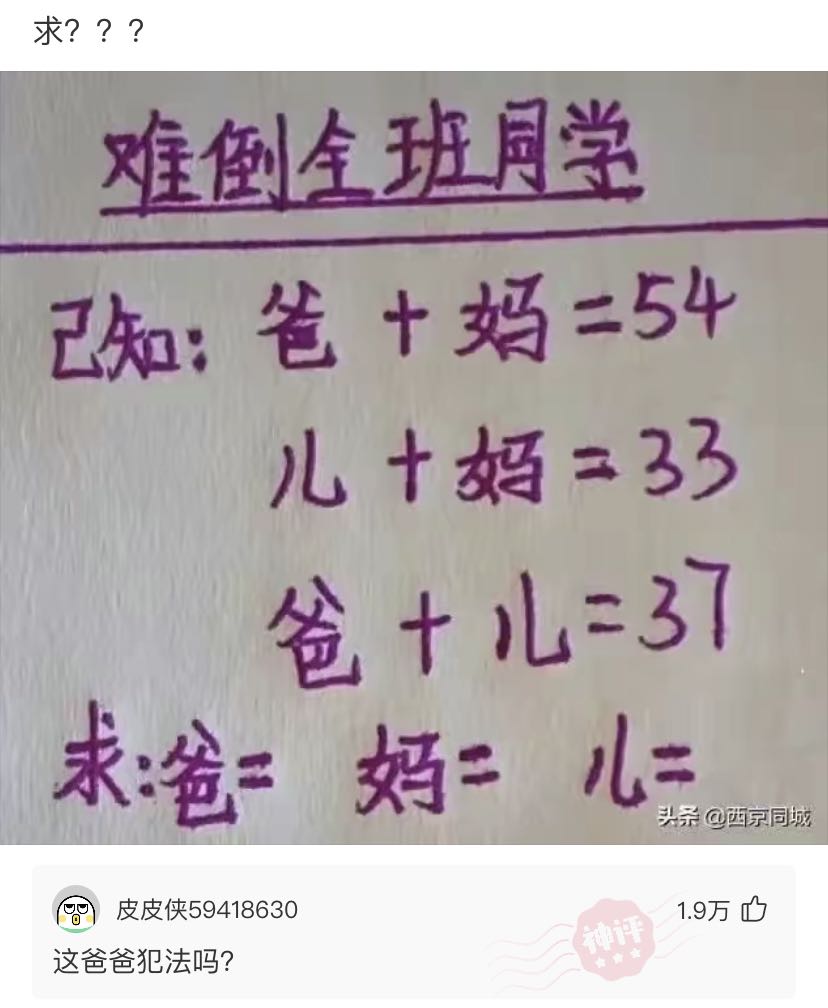 求？？？
难倒全班同学
已知：爸+妈=54
儿+妈=33
爸+儿=37
求：爸= 妈= 儿=
头条 @西京同城
皮皮侠59418630
1.9万
这爸爸犯法吗？
神评